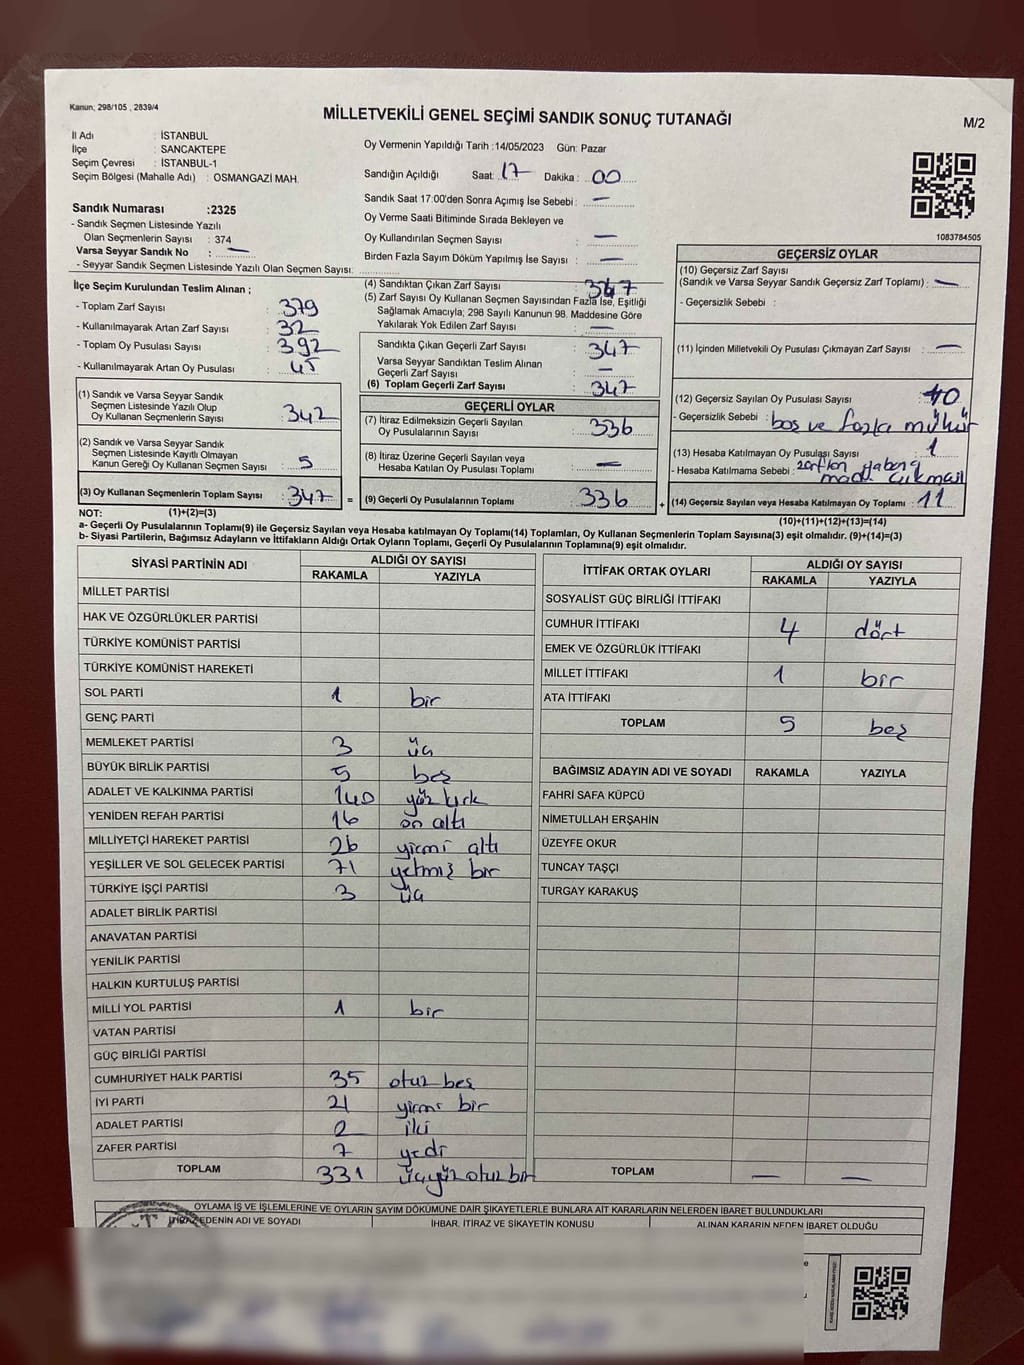 Kanun; 298/105 , 2839/4
MİLLETVEKİLİ GENEL SEÇİMİ SANDIK SONUÇ TUTANAĞI
M/2
İl Adı : İSTANBUL
İlçe : SANCAKTEPE
Seçim Çevresi : İSTANBUL-1
Seçim Bölgesi (Mahalle Adı) : OSMANGAZİ MAH.
Sandık Numarası :2325
- Sandık Seçmen Listesinde Yazılı
Olan Seçmenlerin Sayısı : 374
Varsa Seyyar Sandık No : —
- Seyyar Sandık Seçmen Listesinde Yazılı Olan Seçmen Sayısı:
Oy Vermenin Yapıldığı Tarih :14/05/2023 Gün: Pazar
Sandığın Açıldığı Saat: 17 Dakika : 00
Sandık Saat 17:00'den Sonra Açımış İse Sebebi : —
Oy Verme Saati Bitiminde Sırada Bekleyen ve
Oy Kullandırılan Seçmen Sayısı : —
Birden Fazla Sayım Döküm Yapılmış İse Sayısı : —
1083784505
İlçe Seçim Kurulundan Teslim Alınan ;
- Toplam Zarf Sayısı : 379
- Kullanılmayarak Artan Zarf Sayısı : 32
- Toplam Oy Pusulası Sayısı : 392
- Kullanılmayarak Artan Oy Pusulası : 45
(1) Sandık ve Varsa Seyyar Sandık
Seçmen Listesinde Yazılı Olup
Oy Kullanan Seçmenlerin Sayısı : 342
(2) Sandık ve Varsa Seyyar Sandık
Seçmen Listesinde Kayıtlı Olmayan
Kanun Gereği Oy Kullanan Seçmen Sayısı : 5
(3) Oy Kullanan Seçmenlerin Toplam Sayısı : 347 =
(1)+(2)=(3)
(4) Sandıktan Çıkan Zarf Sayısı : 347
(5) Zarf Sayısı Oy Kullanan Seçmen Sayısından Fazla İse, Eşitliği
Sağlamak Amacıyla; 298 Sayılı Kanunun 98. Maddesine Göre
Yakılarak Yok Edilen Zarf Sayısı : —
Sandıkta Çıkan Geçerli Zarf Sayısı : 347
Varsa Seyyar Sandıktan Teslim Alınan
Geçerli Zarf Sayısı : —
(6) Toplam Geçerli Zarf Sayısı : 347
GEÇERLİ OYLAR
(7) İtiraz Edilmeksizin Geçerli Sayılan
Oy Pusulalarının Sayısı : 336
(8) İtiraz Üzerine Geçerli Sayılan veya
Hesaba Katılan Oy Pusulası Toplamı : —
(9) Geçerli Oy Pusulalarının Toplamı : 336 +
GEÇERSİZ OYLAR
(10) Geçersiz Zarf Sayısı
(Sandık ve Varsa Seyyar Sandık Geçersiz Zarf Toplamı) : —
- Geçersizlik Sebebi :
(11) İçinden Milletvekili Oy Pusulası Çıkmayan Zarf Sayısı : —
(12) Geçersiz Sayılan Oy Pusulası Sayısı : 10
- Geçersizlik Sebebi : boş ve fazla mühür
(13) Hesaba Katılmayan Oy Pusulası Sayısı : 1
- Hesaba Katılmama Sebebi : zarftan yabancı
mad. çıkması
(14) Geçersiz Sayılan veya Hesaba Katılmayan Oy Toplamı : 11
(10)+(11)+(12)+(13)=(14)
NOT:
a- Geçerli Oy Pusulalarının Toplamı(9) ile Geçersiz Sayılan veya Hesaba katılmayan Oy Toplamı(14) Toplamları, Oy Kullanan Seçmenlerin Toplam Sayısına(3) eşit olmalıdır. (9)+(14)=(3)
b- Siyasi Partilerinin, Bağımsız Adayların ve İttifakların Aldığı Oy Sayıları Oyların Toplamı, Geçerli Oy Pusulalarının Toplamına(9) eşit olmalıdır.
SİYASİ PARTİNİN ADI
ALDIĞI OY SAYISI
RAKAMLA YAZIYLA
MİLLET PARTİSİ
HAK VE ÖZGÜRLÜKLER PARTİSİ
TÜRKİYE KOMÜNİST PARTİSİ
TÜRKİYE KOMÜNİST HAREKETİ
SOL PARTİ 1 bir
GENÇ PARTİ
MEMLEKET PARTİSİ 3 üç
BÜYÜK BİRLİK PARTİSİ 5 beş
ADALET VE KALKINMA PARTİSİ 140 yüz kırk
YENİDEN REFAH PARTİSİ 16 on altı
MİLLİYETÇİ HAREKET PARTİSİ 26 yirmi altı
YEŞİLLER VE SOL GELECEK PARTİSİ 71 yetmiş bir
TÜRKİYE İŞÇİ PARTİSİ 3 üç
ADALET BİRLİK PARTİSİ
ANAVATAN PARTİSİ
YENİLİK PARTİSİ
HALKIN KURTULUŞ PARTİSİ
MİLLİ YOL PARTİSİ 1 bir
VATAN PARTİSİ
GÜÇ BİRLİĞİ PARTİSİ
CUMHURİYET HALK PARTİSİ 35 otuz beş
İYİ PARTİ 21 yirmi bir
ADALET PARTİSİ 2 iki
ZAFER PARTİSİ 7 yedi
TOPLAM 331 üçyüz otuz bir
İTTİFAK ORTAK OYLARI
ALDIĞI OY SAYISI
RAKAMLA YAZIYLA
SOSYALİST GÜÇ BİRLİĞİ İTTİFAKI
CUMHUR İTTİFAKI 4 dört
EMEK VE ÖZGÜRLÜK İTTİFAKI
MİLLET İTTİFAKI 1 bir
ATA İTTİFAKI
TOPLAM 5 beş
BAĞIMSIZ ADAYIN ADI VE SOYADI RAKAMLA YAZIYLA
FAHRİ SAFA KÜPCÜ
NİMETULLAH ERŞAHİN
ÜZEYFE OKUR
TUNCAY TAŞÇI
TURGAY KARAKUŞ
TOPLAM — —
OYLAMA İŞ VE İŞLEMLERİNE VE OYLARIN SAYIM DÖKÜMÜNE DAİR ŞİKAYETLERLE BUNLARA AİT KARARLARIN NELERDEN İBARET BULUNDUKLARI
İTİRAZ EDENİN ADI VE SOYADI İHBAR, İTİRAZ VE ŞİKAYETİN KONUSU ALINAN KARARIN NEDEN İBARET OLDUĞU